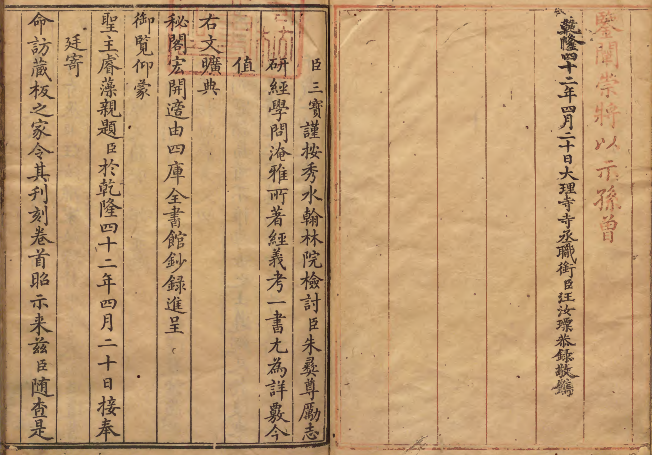 鑒闡崇將以示孫曾
乾隆四十二年四月二十日大理寺寺丞職銜臣汪汝瑮恭錄敬鐫
臣三寳謹按秀水翰林院檢討臣朱彞尊勵志
研經學問淹雅所著經義考一書尤為詳覈今
值
右文曠典
秘閣宏開遵由四庫全書館鈔録進呈
御覧仰蒙
聖主睿藻親題臣於乾隆四十二年四月二十日接奉
廷寄
命訪藏板之家令其刊刻卷首昭示来兹臣随查是